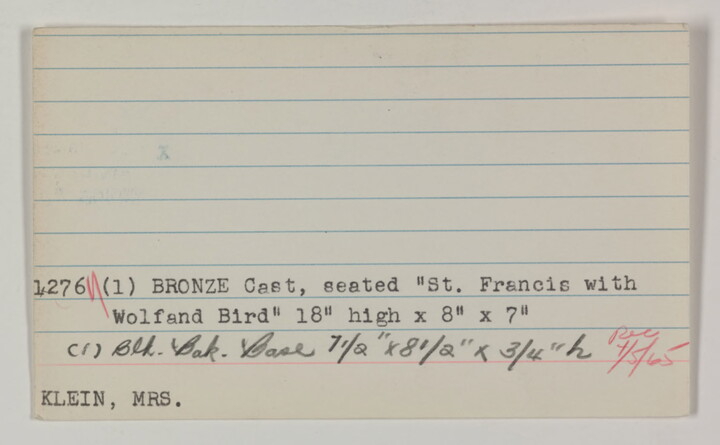 4276 (1) BRONZE Cast, seated "St. Francis with
Wolfand Bird" 18" high x 8" x 7"
(1) Blk. Bak. Base 7 1/2" x 8 1/2" x 3/4" h
Rec
7/5/65
KLEIN, MRS.